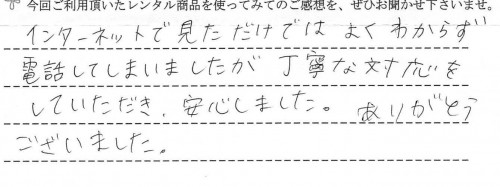 今回ご利用頂いたレンタル商品を使ってみてのご感想を、ぜひお聞かせ下さいませ。
インターネットで見ただけでは よくわからず
電話してしまいましたが 丁寧な対応を
していただき、安心しました。 ありがとう
ございました。